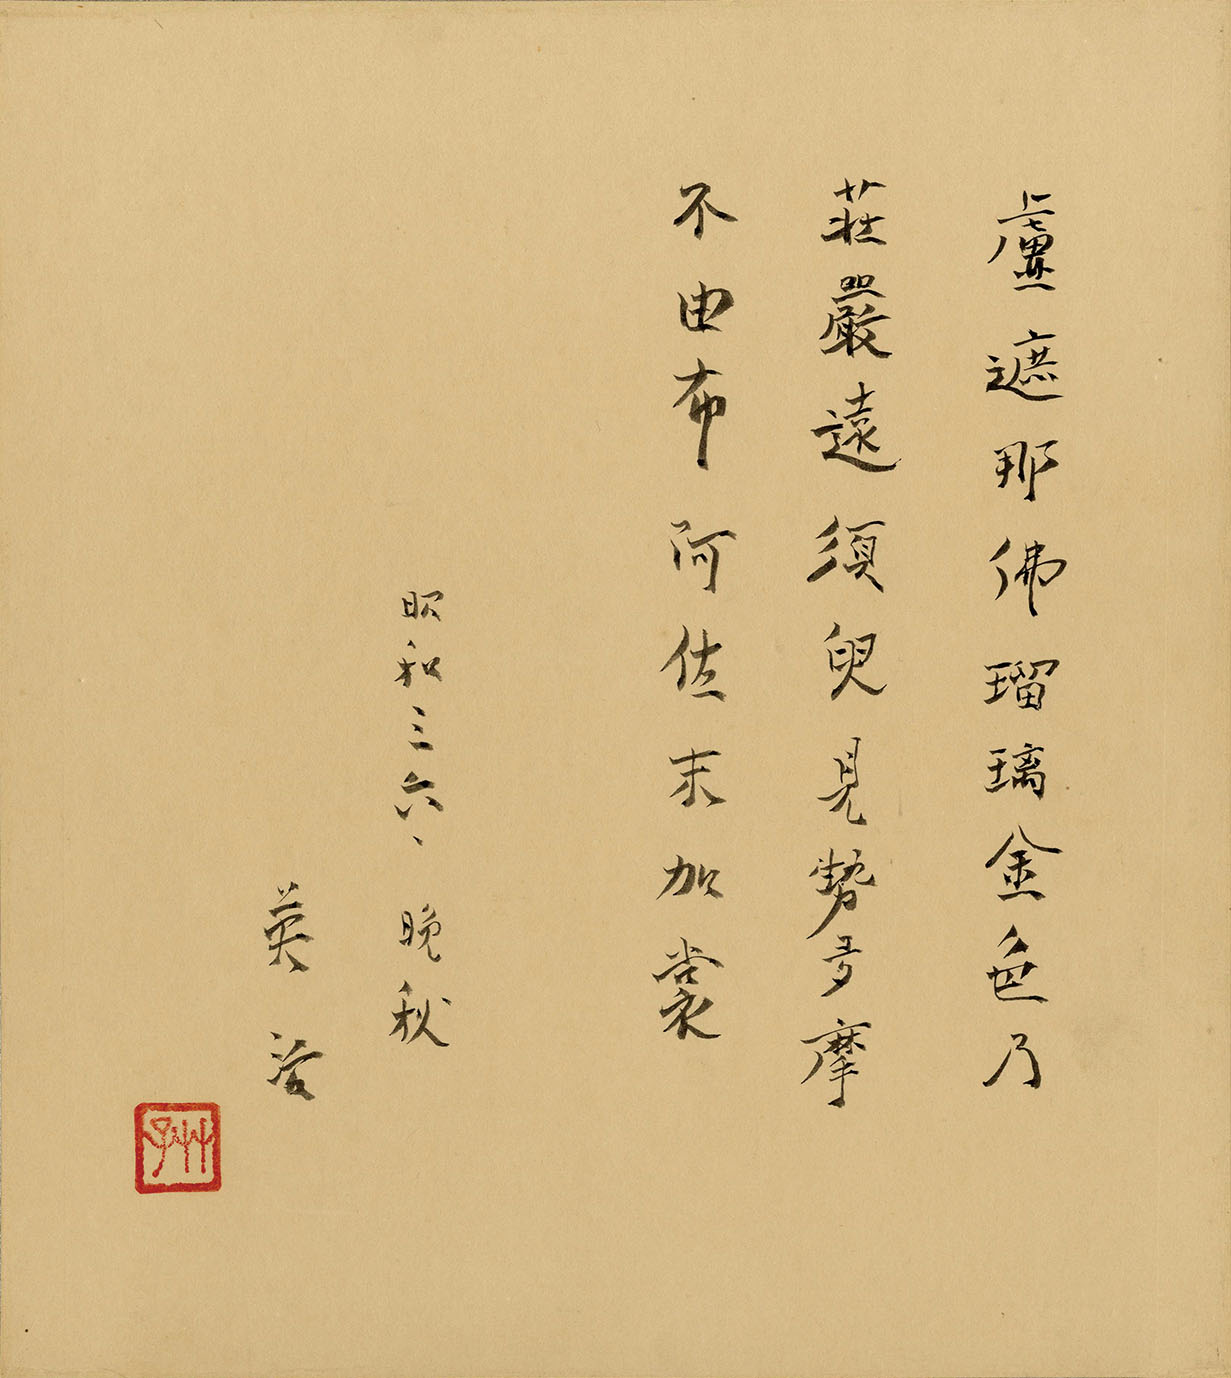 盧遮那佛瑠璃金色乃
荘嚴遠須臾見勢多摩
不由布阿佐末加裳
昭和三六、晩秋
英治